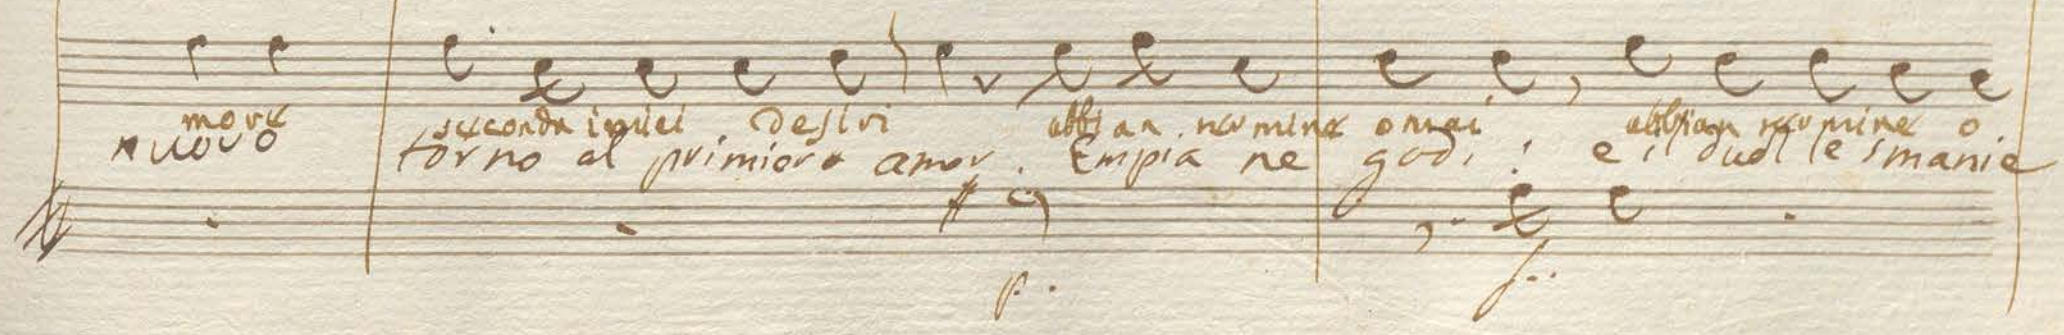 more seconda i miei desiri abbian termine omai abbian termine o.
nuovo torno al primiero amor. Empia ne godi; e il duol le smanie
p. f.